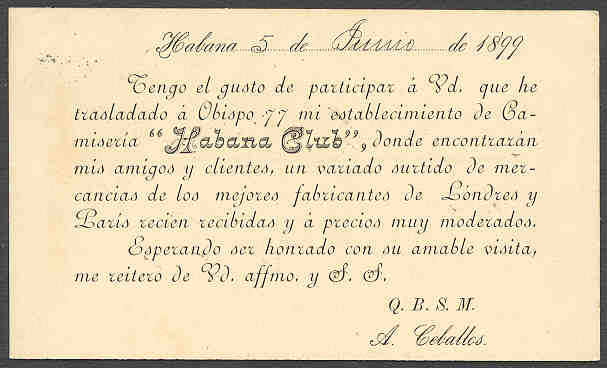 Habana 5 de Junio de 1899
Tengo el gusto de participar á Vd. que he
trasladado á Obispo 77 mi establecimiento de Ca-
misería "Habana Club", donde encontrarán
mis amigos y clientes, un variado surtido de mer-
cancias de los mejores fabricantes de Lóndres y
París recien recibidas y á precios muy moderados.
Esperando ser honrado con su amable visita,
me reitero de Vd. affmo. y S. S.
Q. B. S. M.
A. Ceballos.